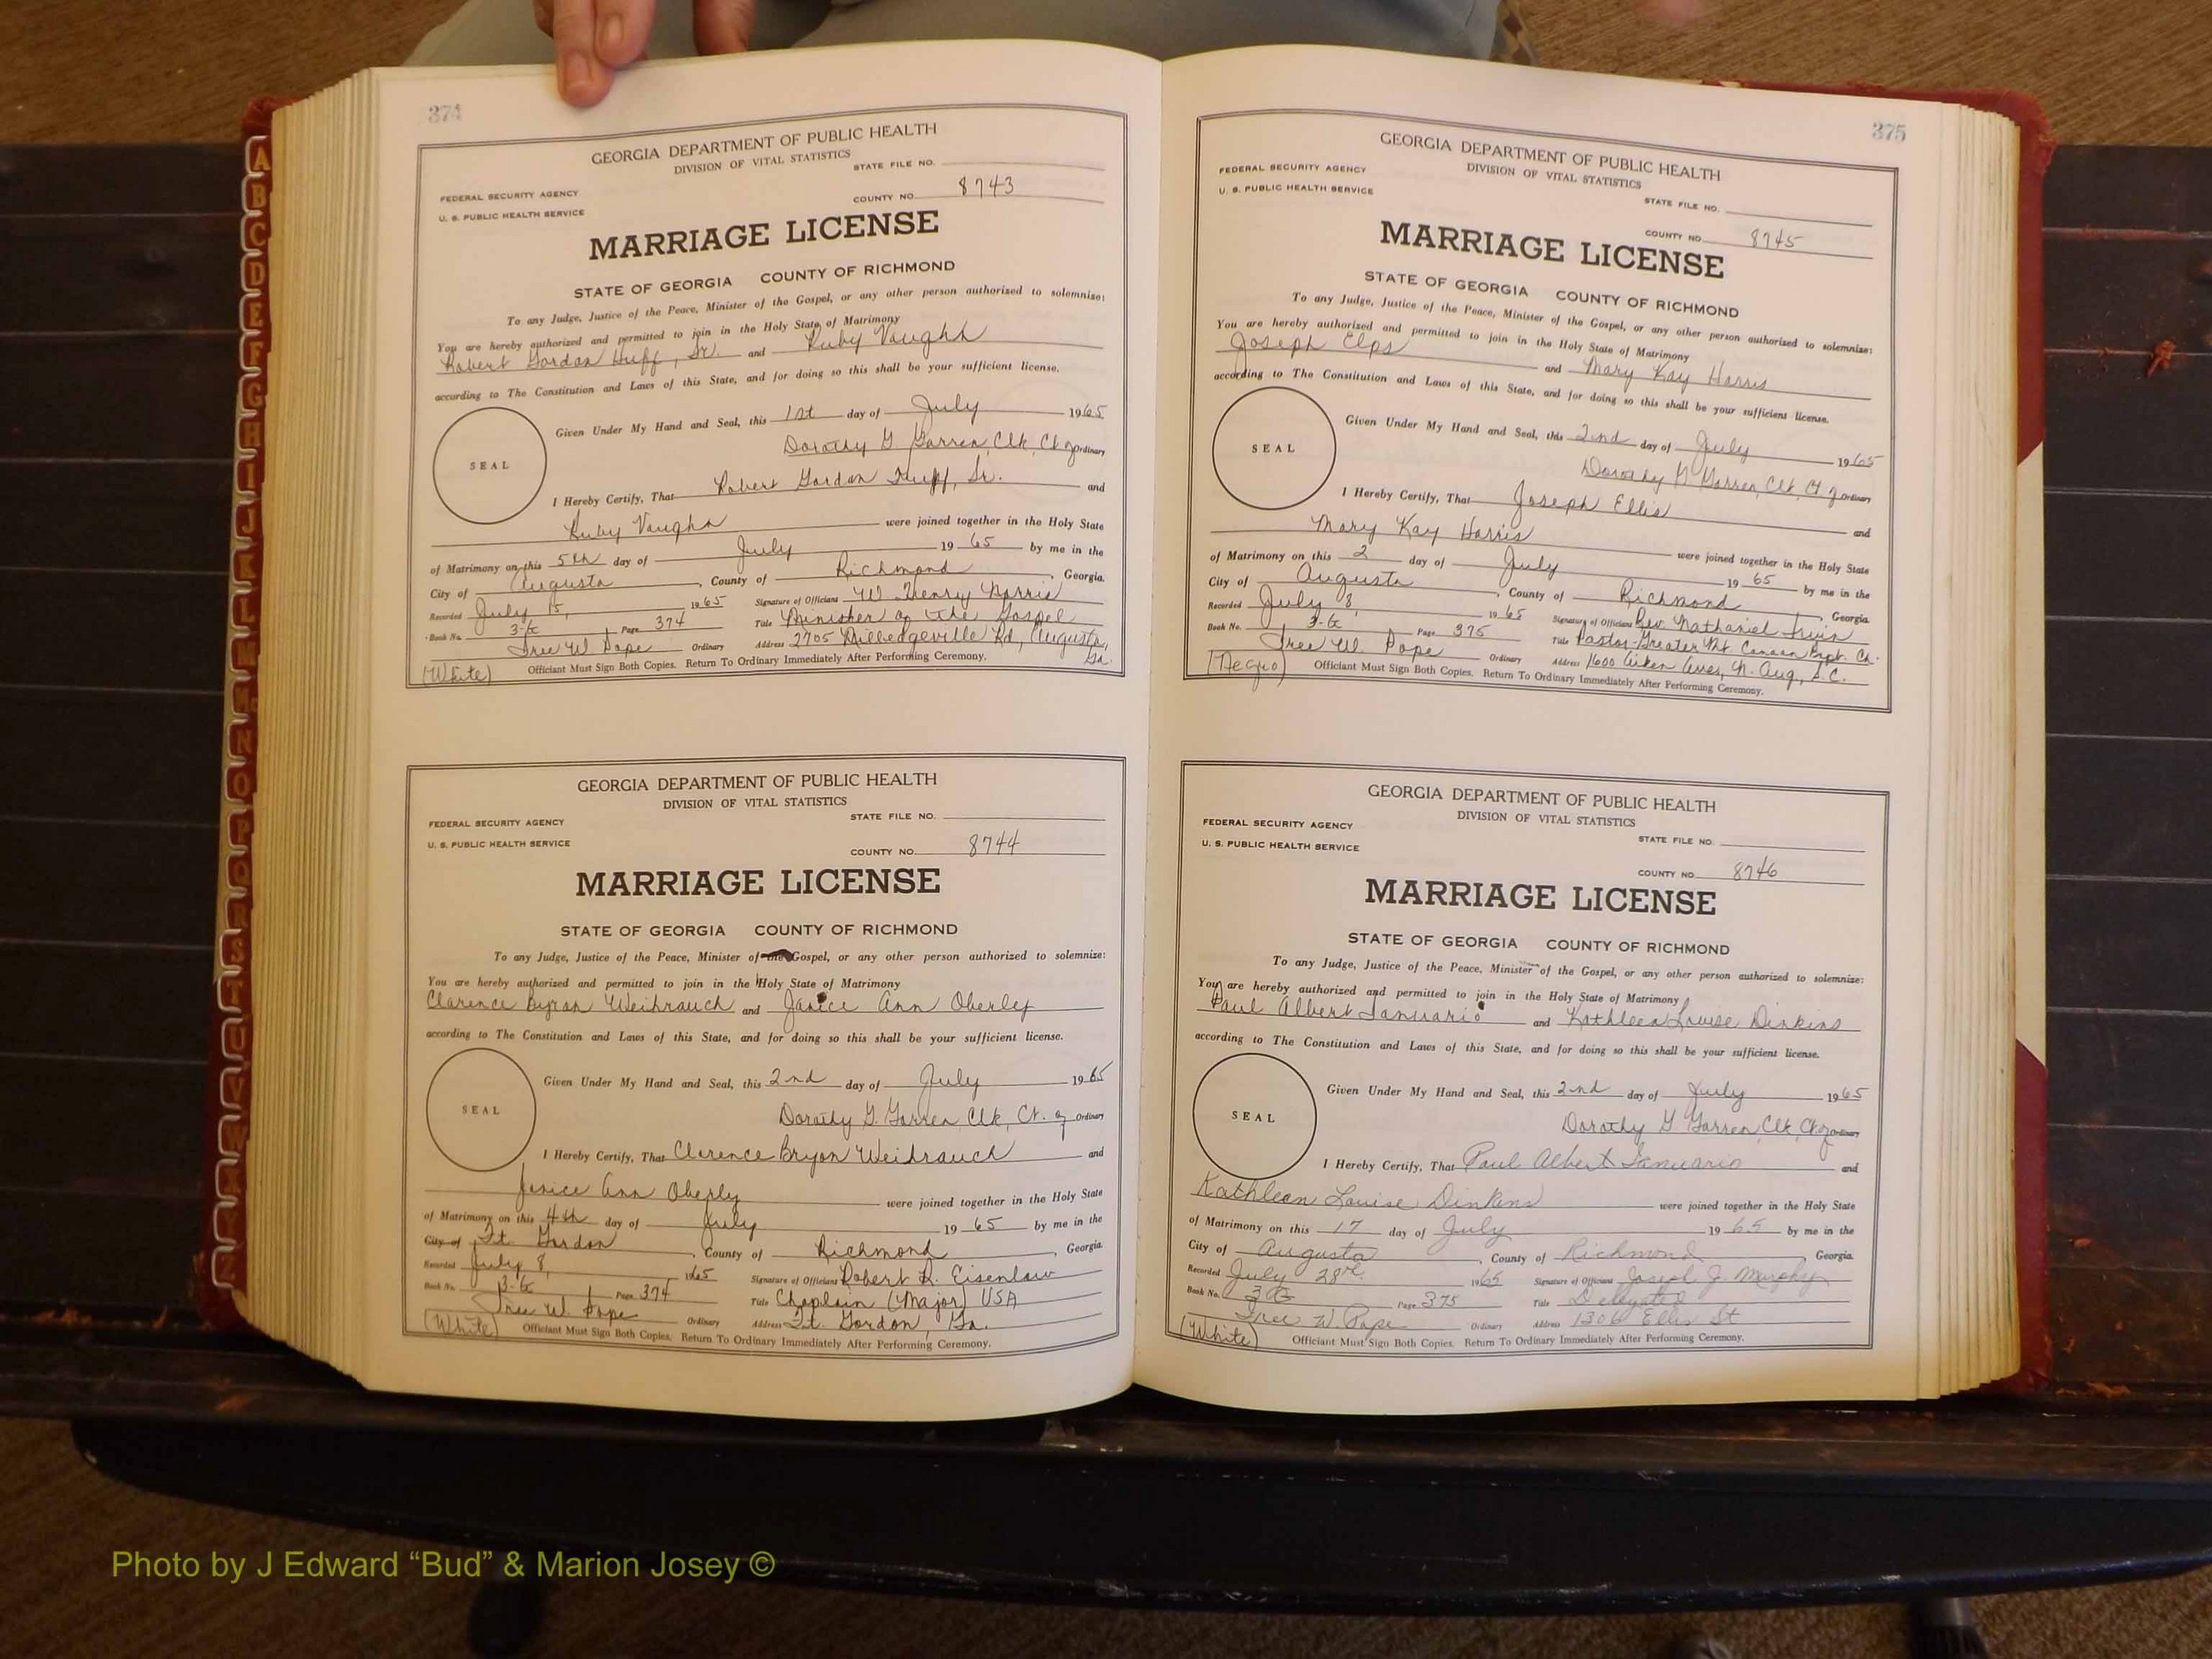 374
GEORGIA DEPARTMENT OF PUBLIC HEALTH
DIVISION OF VITAL STATISTICS
STATE FILE NO.
FEDERAL SECURITY AGENCY
COUNTY NO. 8743
U. S. PUBLIC HEALTH SERVICE
MARRIAGE LICENSE
STATE OF GEORGIA COUNTY OF RICHMOND
To any Judge, Justice of the Peace, Minister of the Gospel, or any other person authorized to solemnize:
You are hereby authorized and permitted to join in the Holy State of Matrimony
Robert Gordon Huff, Sr. and Ruby Vaughn
according to The Constitution and Laws of this State, and for doing so this shall be your sufficient license.
Given Under My Hand and Seal, this 1st day of July 1965
SEAL
Dorothy G. Garren, Clk, Ct of Ordinary
I Hereby Certify, That Robert Gordon Huff, Sr. and
Ruby Vaughn were joined together in the Holy State
of Matrimony on this 5th day of July 19 65 by me in the
City of Augusta, County of Richmond, Georgia.
Recorded July 15, 1965 Signature of Officiant W. Henry Norris
Book No. 3-G Page 374 Title Minister of the Gospel
Tree W. Pope Ordinary Address 2705 Milledgeville Rd, Augusta, Ga.
(White) Officiant Must Sign Both Copies. Return To Ordinary Immediately After Performing Ceremony.
GEORGIA DEPARTMENT OF PUBLIC HEALTH
DIVISION OF VITAL STATISTICS
STATE FILE NO.
FEDERAL SECURITY AGENCY
U. S. PUBLIC HEALTH SERVICE
COUNTY NO. 8744
MARRIAGE LICENSE
STATE OF GEORGIA COUNTY OF RICHMOND
To any Judge, Justice of the Peace, Minister of the Gospel, or any other person authorized to solemnize:
You are hereby authorized and permitted to join in the Holy State of Matrimony
Clarence Byron Weihrauch and Janice Ann Oberley
according to The Constitution and Laws of this State, and for doing so this shall be your sufficient license.
Given Under My Hand and Seal, this 2nd day of July 1965
SEAL
Dorothy G. Garren, Clk, Ct. of Ordinary
I Hereby Certify, That Clarence Bryon Weihrauch and
Janice Ann Oberly were joined together in the Holy State
of Matrimony on this 4th day of July 19 65 by me in the
City of Ft. Gordon, County of Richmond, Georgia.
Recorded July 8, 1965 Signature of Officiant Robert R. Eisenlaw
Book No. 3-G Page 374 Title Chaplain (Major) USA
Tree W. Pope Ordinary Address Ft. Gordon, Ga.
(White) Officiant Must Sign Both Copies. Return To Ordinary Immediately After Performing Ceremony.
375
GEORGIA DEPARTMENT OF PUBLIC HEALTH
DIVISION OF VITAL STATISTICS
FEDERAL SECURITY AGENCY
U. S. PUBLIC HEALTH SERVICE
STATE FILE NO.
COUNTY NO. 8745
MARRIAGE LICENSE
STATE OF GEORGIA COUNTY OF RICHMOND
To any Judge, Justice of the Peace, Minister of the Gospel, or any other person authorized to solemnize:
You are hereby authorized and permitted to join in the Holy State of Matrimony
Joseph Elps and Mary Kay Harris
according to The Constitution and Laws of this State, and for doing so this shall be your sufficient license.
Given Under My Hand and Seal, this 2nd day of July 1965
SEAL
Dorothy G Garren, Clk, Ct of Ordinary
I Hereby Certify, That Joseph Ellis and
Mary Kay Harris were joined together in the Holy State
of Matrimony on this 2 day of July 19 65 by me in the
City of Augusta, County of Richmond, Georgia.
Recorded July 8, 1965 Signature of Officiant Rev. Nathaniel Irvin
Book No. 3-G Page 375 Title Pastor-Greater Mt. Canaan Bapt. Ch.
Tree W. Pope Ordinary Address 1600 Aiken Aves, N. Aug., S.C.
(Negro) Officiant Must Sign Both Copies. Return To Ordinary Immediately After Performing Ceremony.
GEORGIA DEPARTMENT OF PUBLIC HEALTH
DIVISION OF VITAL STATISTICS
FEDERAL SECURITY AGENCY
STATE FILE NO.
U. S. PUBLIC HEALTH SERVICE
COUNTY NO. 8746
MARRIAGE LICENSE
STATE OF GEORGIA COUNTY OF RICHMOND
To any Judge, Justice of the Peace, Minister of the Gospel, or any other person authorized to solemnize:
You are hereby authorized and permitted to join in the Holy State of Matrimony
Paul Albert Ianuario and Kathleen Louise Dinkins
according to The Constitution and Laws of this State, and for doing so this shall be your sufficient license.
Given Under My Hand and Seal, this 2nd day of July 1965
SEAL
Dorothy G Garren, Clk, Ct of Ordinary
I Hereby Certify, That Paul Albert Ianuario and
Kathleen Louise Dinkins were joined together in the Holy State
of Matrimony on this 17 day of July 19 65 by me in the
City of Augusta, County of Richmond, Georgia.
Recorded July 28 1965 Signature of Officiant Joseph J. Murphy
Book No. 3G Page 375 Title Delegated
Tree W. Pope Ordinary Address 1306 Ellis St
(White) Officiant Must Sign Both Copies. Return To Ordinary Immediately After Performing Ceremony.
A
B
C
D
E
F
G
H
I
J
K
L
M
Mc
N
O
P
Q
R
S
T
U
V
W
X
Y
Z
Photo by J Edward “Bud” & Marion Josey ©